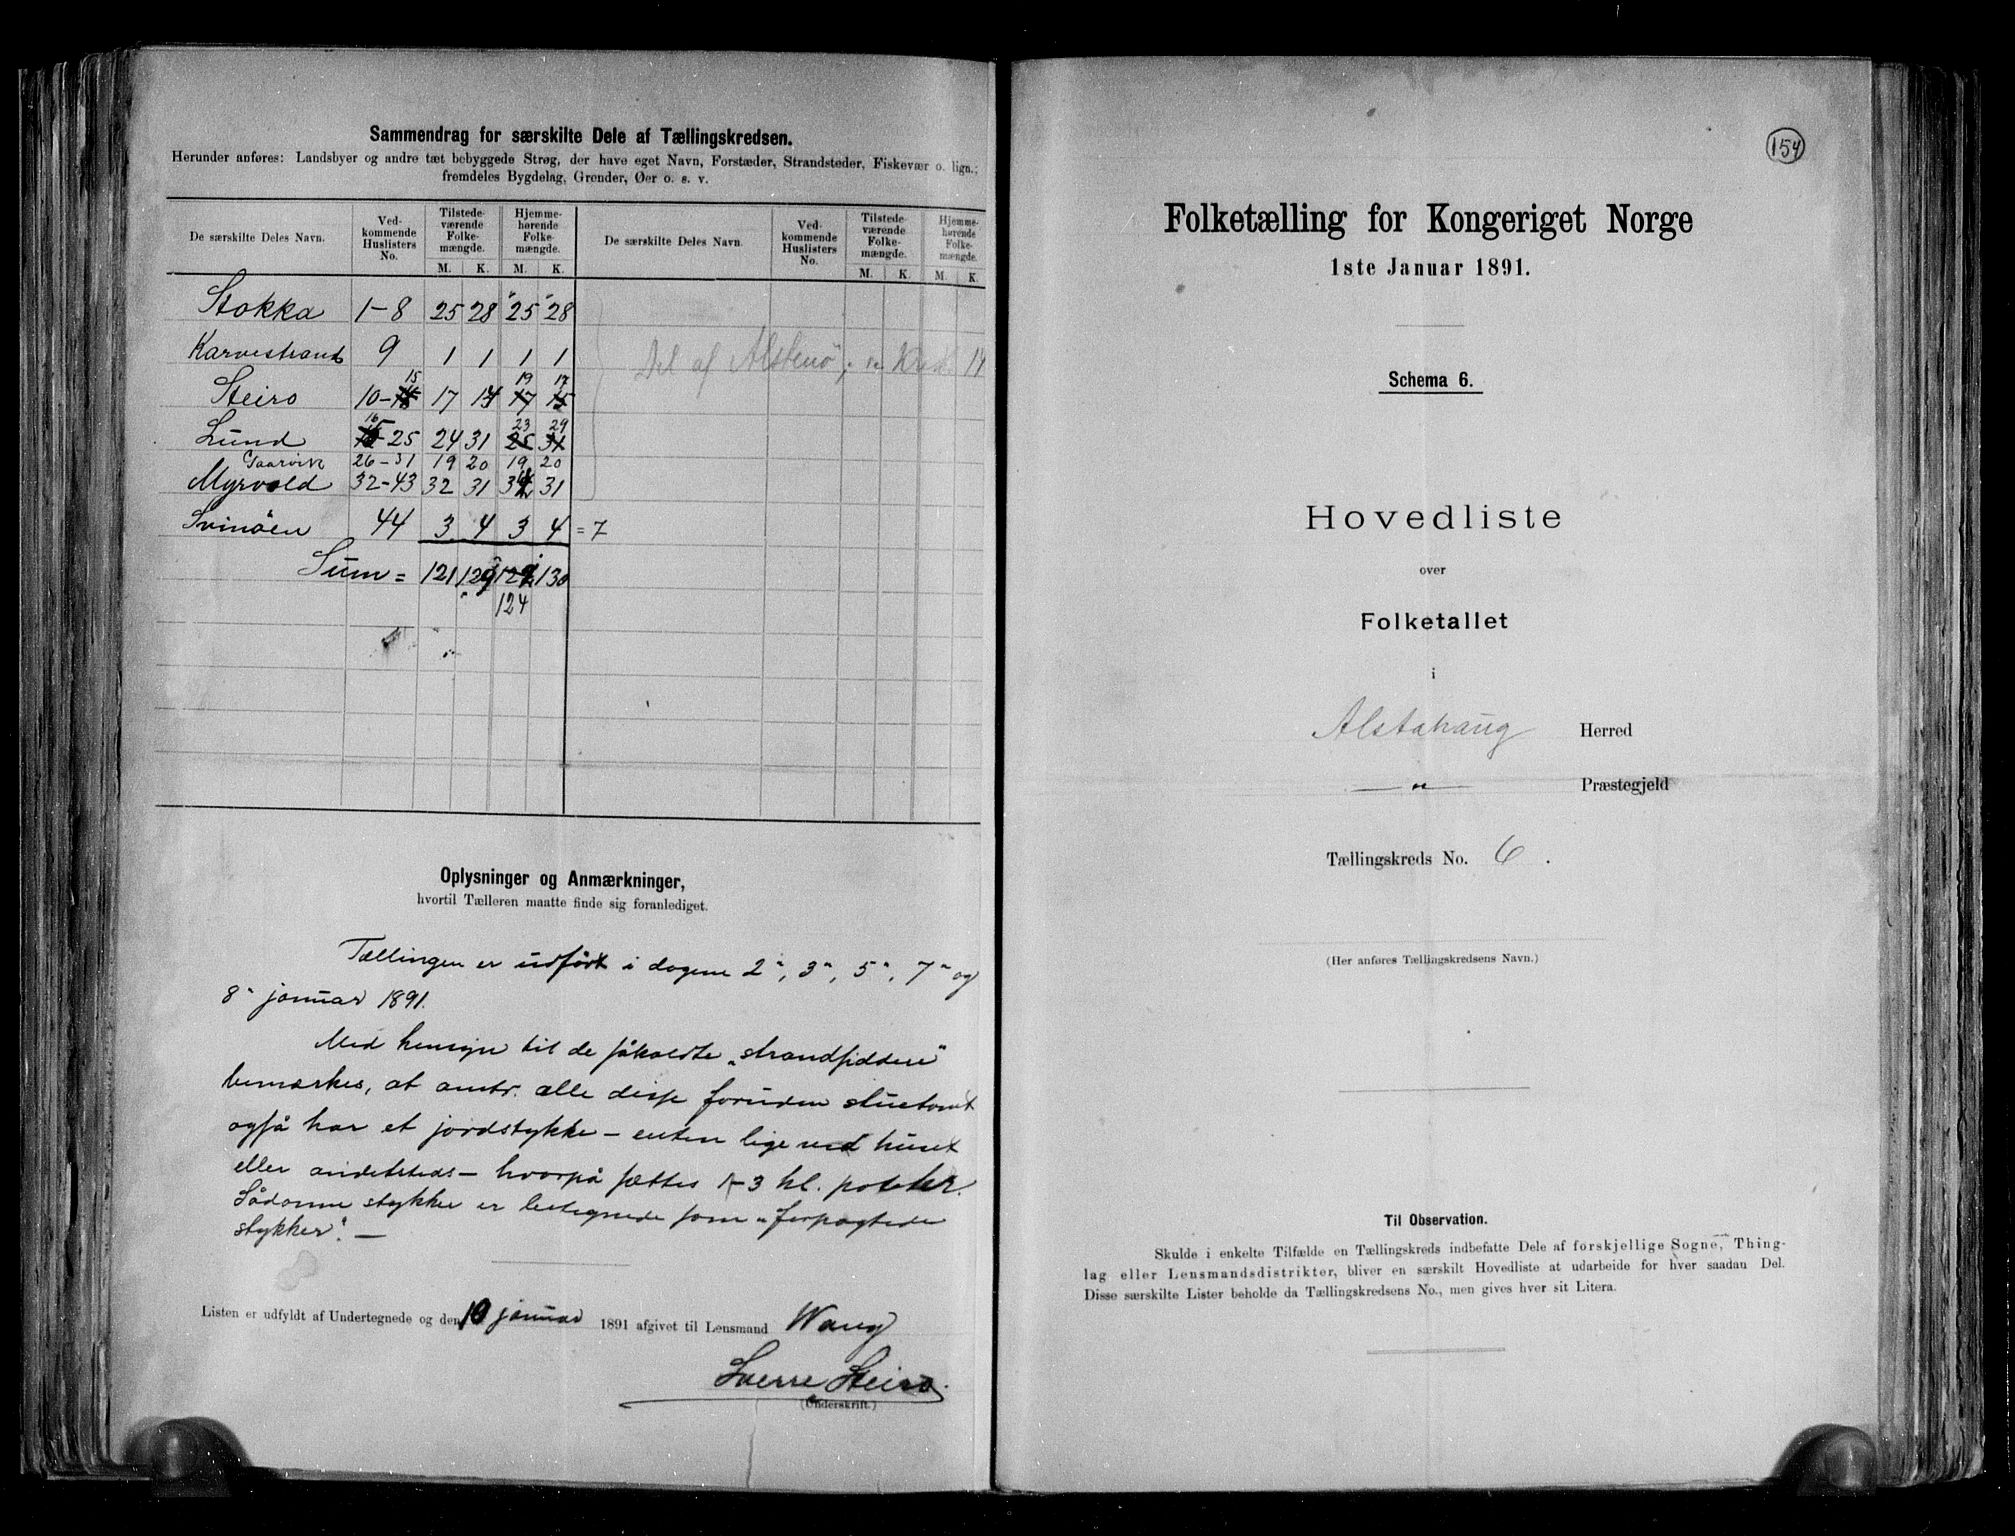 Sammendrag for særskilte Dele af Tællingskredsen.
Herunder anføres: Landsbyer og andre tæt bebyggede Strøg, der have eget Navn, Forstæder, Strandsteder, Fiskevær o. lign.;
fremdeles Bygdelag, Grender, Øer o. s. v.
De særskilte Deles Navn. Ved-kommende Huslisters No. Tilstede-værende Folke-mængde. M. K. Hjemme-hørende Folke-mængde. M. K. De særskilte Deles Navn. Ved-kommende Huslisters No. Tilstede-værende Folke-mængde. M. K. Hjemme-hørende Folke-mængde. M. K.
Stokka 1-8 25 28 25 28
Karvestrand 9 1 1 1 1 Del af Alstenø
15 19 17
Steiro 10- 17 14 17 15
16 23 29
Lund 15-25 24 31 25 31
26-31 19 20 19 20
Myrvold 32-43 32 31 31
Svinöen 44 3 4 3 4 = 7
Sum = 121 129 130
124
Oplysninger og Anmærkninger,
hvortil Tælleren maatte finde sig foranlediget.
Tællingen er udført i dagene 2", 3", 5", 7" og
8" januar 1891.
Med hensyn til de såkaldte „strandsiddere"
bemærkes, at omtr. alle disse foruden stuetomt
også har et jordstykke – enten lige ved huset
eller andetsteds – hvorpå sættes 1–3 hl. poteter.
Sådanne stykker er betegnede som „forpagtede
stykker". —
Listen er udfyldt af Undertegnede og den 10 januar 1891 afgivet til Lensmand Wang
Sverre Steiro.
(Underskrift.)
154
Folketælling for Kongeriget Norge
1ste Januar 1891.
Schema 6.
Hovedliste
over
Folketallet
i
Alstahaug Herred
—„— Præstegjeld
Tællingskreds No. 6.
(Her anføres Tællingskredsens Navn.)
Til Observation.
Skulde i enkelte Tilfælde en Tællingskreds indbefatte Dele af forskjellige Sogne, Thing-
lag eller Lensmandsdistrikter, bliver en særskilt Hovedliste at udarbeide for hver saadan Del.
Disse særskilte Lister beholde da Tællingskredsens No., men gives hver sit Litera.